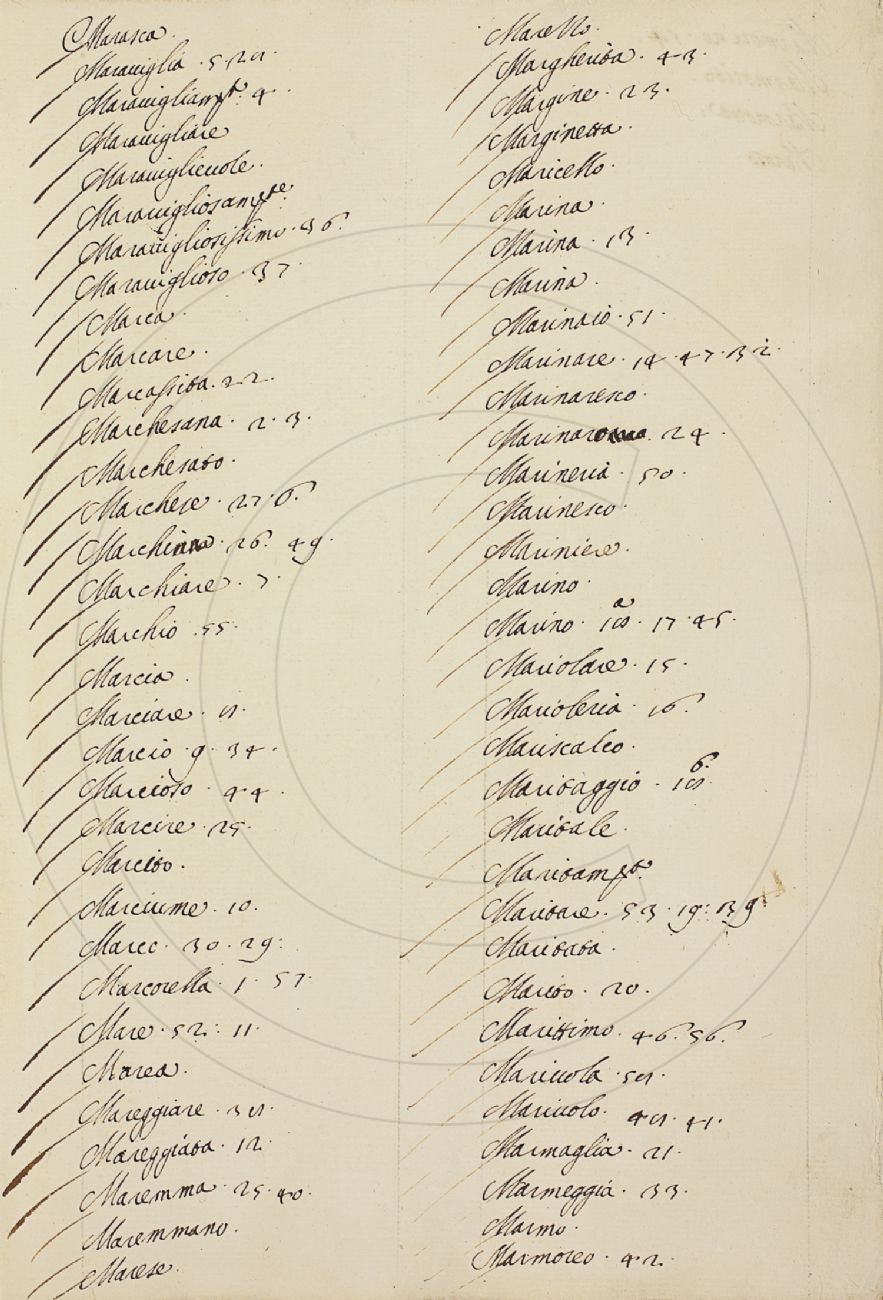 Marasca.
Maraviglia. 5. 28.
Maravigliampte. 4.
Maravigliare
Maraviglievole.
Maravigliosampte.
Maravigliosissimo. 36.
Maraviglioso. 37.
Marca.
Marcare.
Marcassita. 22.
Marchesana. 2. 3.
Marchesato.
Marchese. 27. 6.
Marchiana. 26. 49.
Marchiare. 7.
Marchio. 55.
Marcia.
Marciare. 8.
Marcio. 9. 34.
Marcioso. 44.
Marcire. 25.
Marcito.
Marciume. 10.
Marco. 30. 29.
Marcorella. 1. 57.
Mare. 52. 11.
Marea.
Mareggiare. 38.
Mareggiata. 12.
Maremma. 25. 40.
Maremmano.
Marese.
Maretto.
Margherita. 43.
Margine. 23.
Marginetta.
Maricello.
Marina.
Marina. 13.
Marina.
Marinaio. 51.
Marinare. 14. 47. 32.
Marinaresco.
24.
Marineria. 50.
Marinesco.
Mariniere.
Marino.
Marino. 18. a 17. 45.
Mariolare. 15.
Marioleria. 16.
Mariscalco.
Maritaggio. 18. 6.
Maritale.
Maritampto.
Maritare. 53. 19. 39
Maritata.
Marito. 20.
Marittimo. 46. 56.
Mariuola. 58.
Mariuolo. 48. 41.
Marmaglia. 21.
Marmeggia. 33.
Marmo.
Marmoreo. 42.